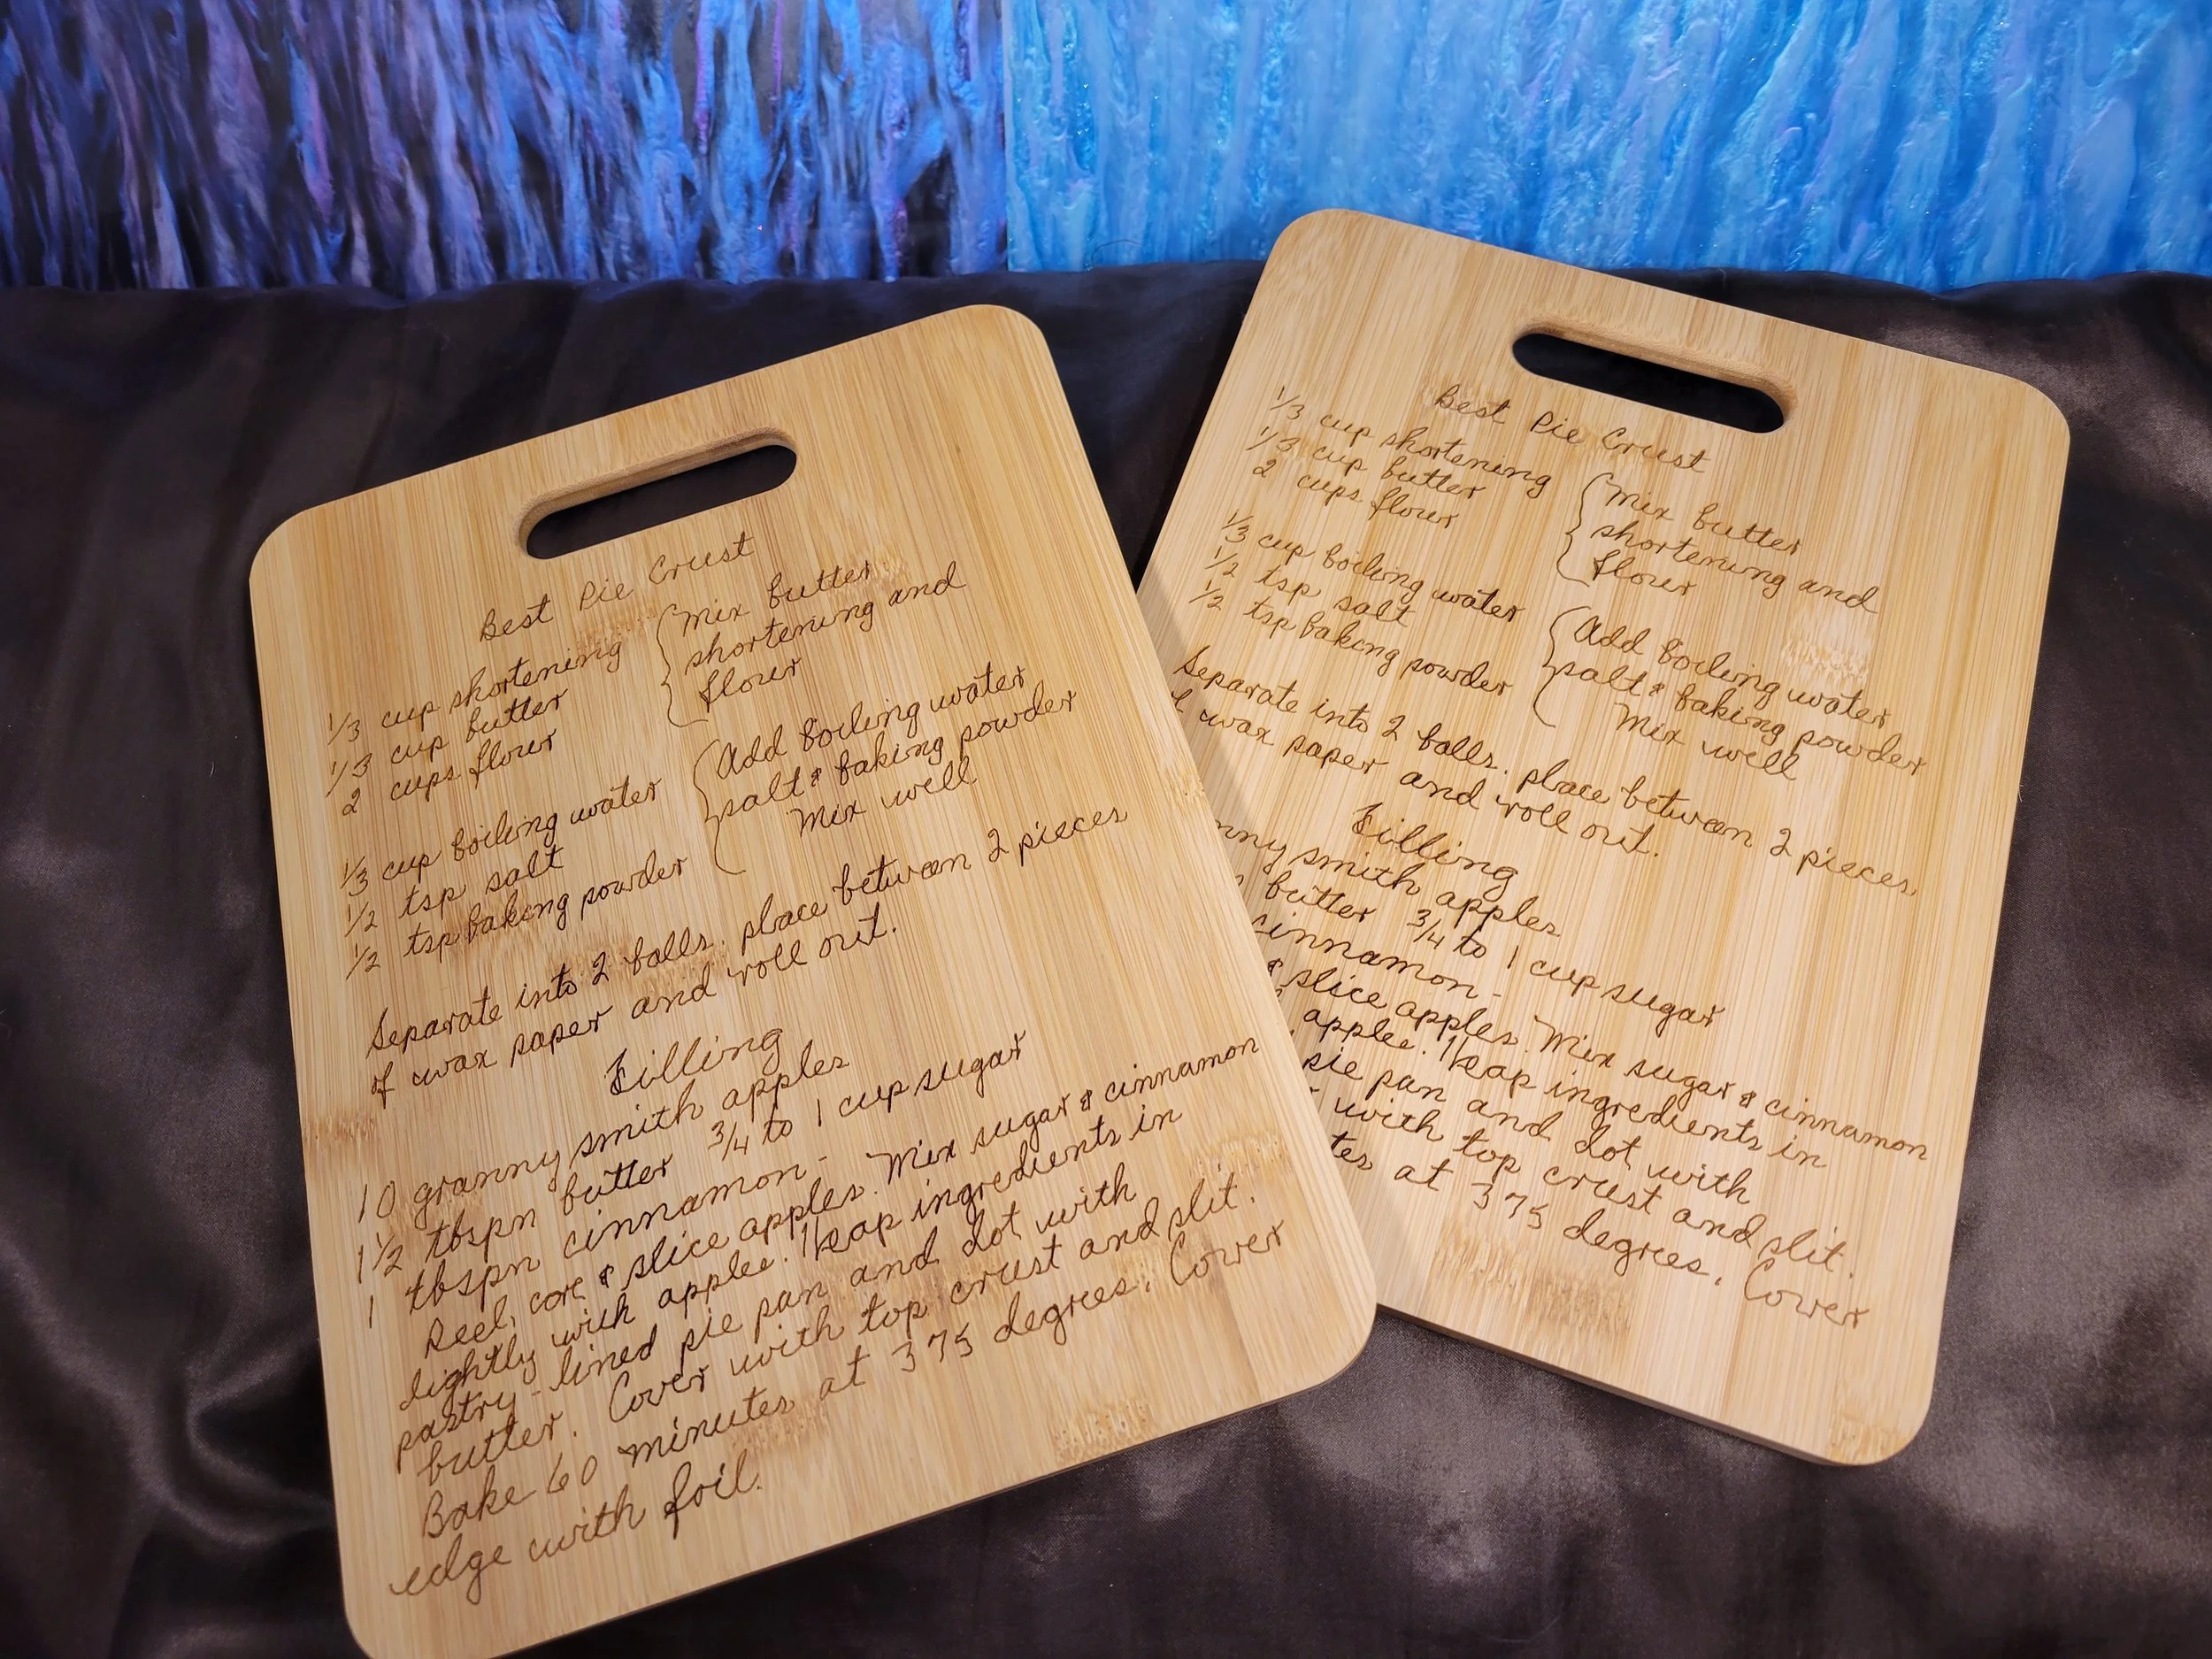 Best Pie Crust
1/3 cup shortening
1/3 cup butter
2 cups flour
Mix butter
shortening and
flour
1/3 cup boiling water
1/2 tsp salt
1/2 tsp baking powder
Add boiling water
salt & baking powder
Mix well
Separate into 2 balls. place between 2 pieces
of wax paper and roll out.
Filling
10 granny smith apples
1 1/2 tbspn butter 3/4 to 1 cup sugar
1 tbspn cinnamon -
Peel, core & slice apples. Mix sugar & cinnamon
lightly with apples. Heap ingredients in
pastry-lined pie pan and dot with
butter. Cover with top crust and slit.
Bake 60 minutes at 375 degrees. Cover
edge with foil.
Best Pie Crust
1/3 cup shortening
1/3 cup butter
2 cups flour
Mix butter
shortening and
flour
1/3 cup boiling water
1/2 tsp salt
1/2 tsp baking powder
Add boiling water
salt & baking powder
Mix well
Separate into 2 balls. place between 2 pieces
of wax paper and roll out.
Filling
smith apples
butter 3/4 to 1 cup sugar
cinnamon -
& slice apples. Mix sugar & cinnamon
apples. Heap ingredients in
pie pan and dot with
with top crust and slit.
at 375 degrees. Cover